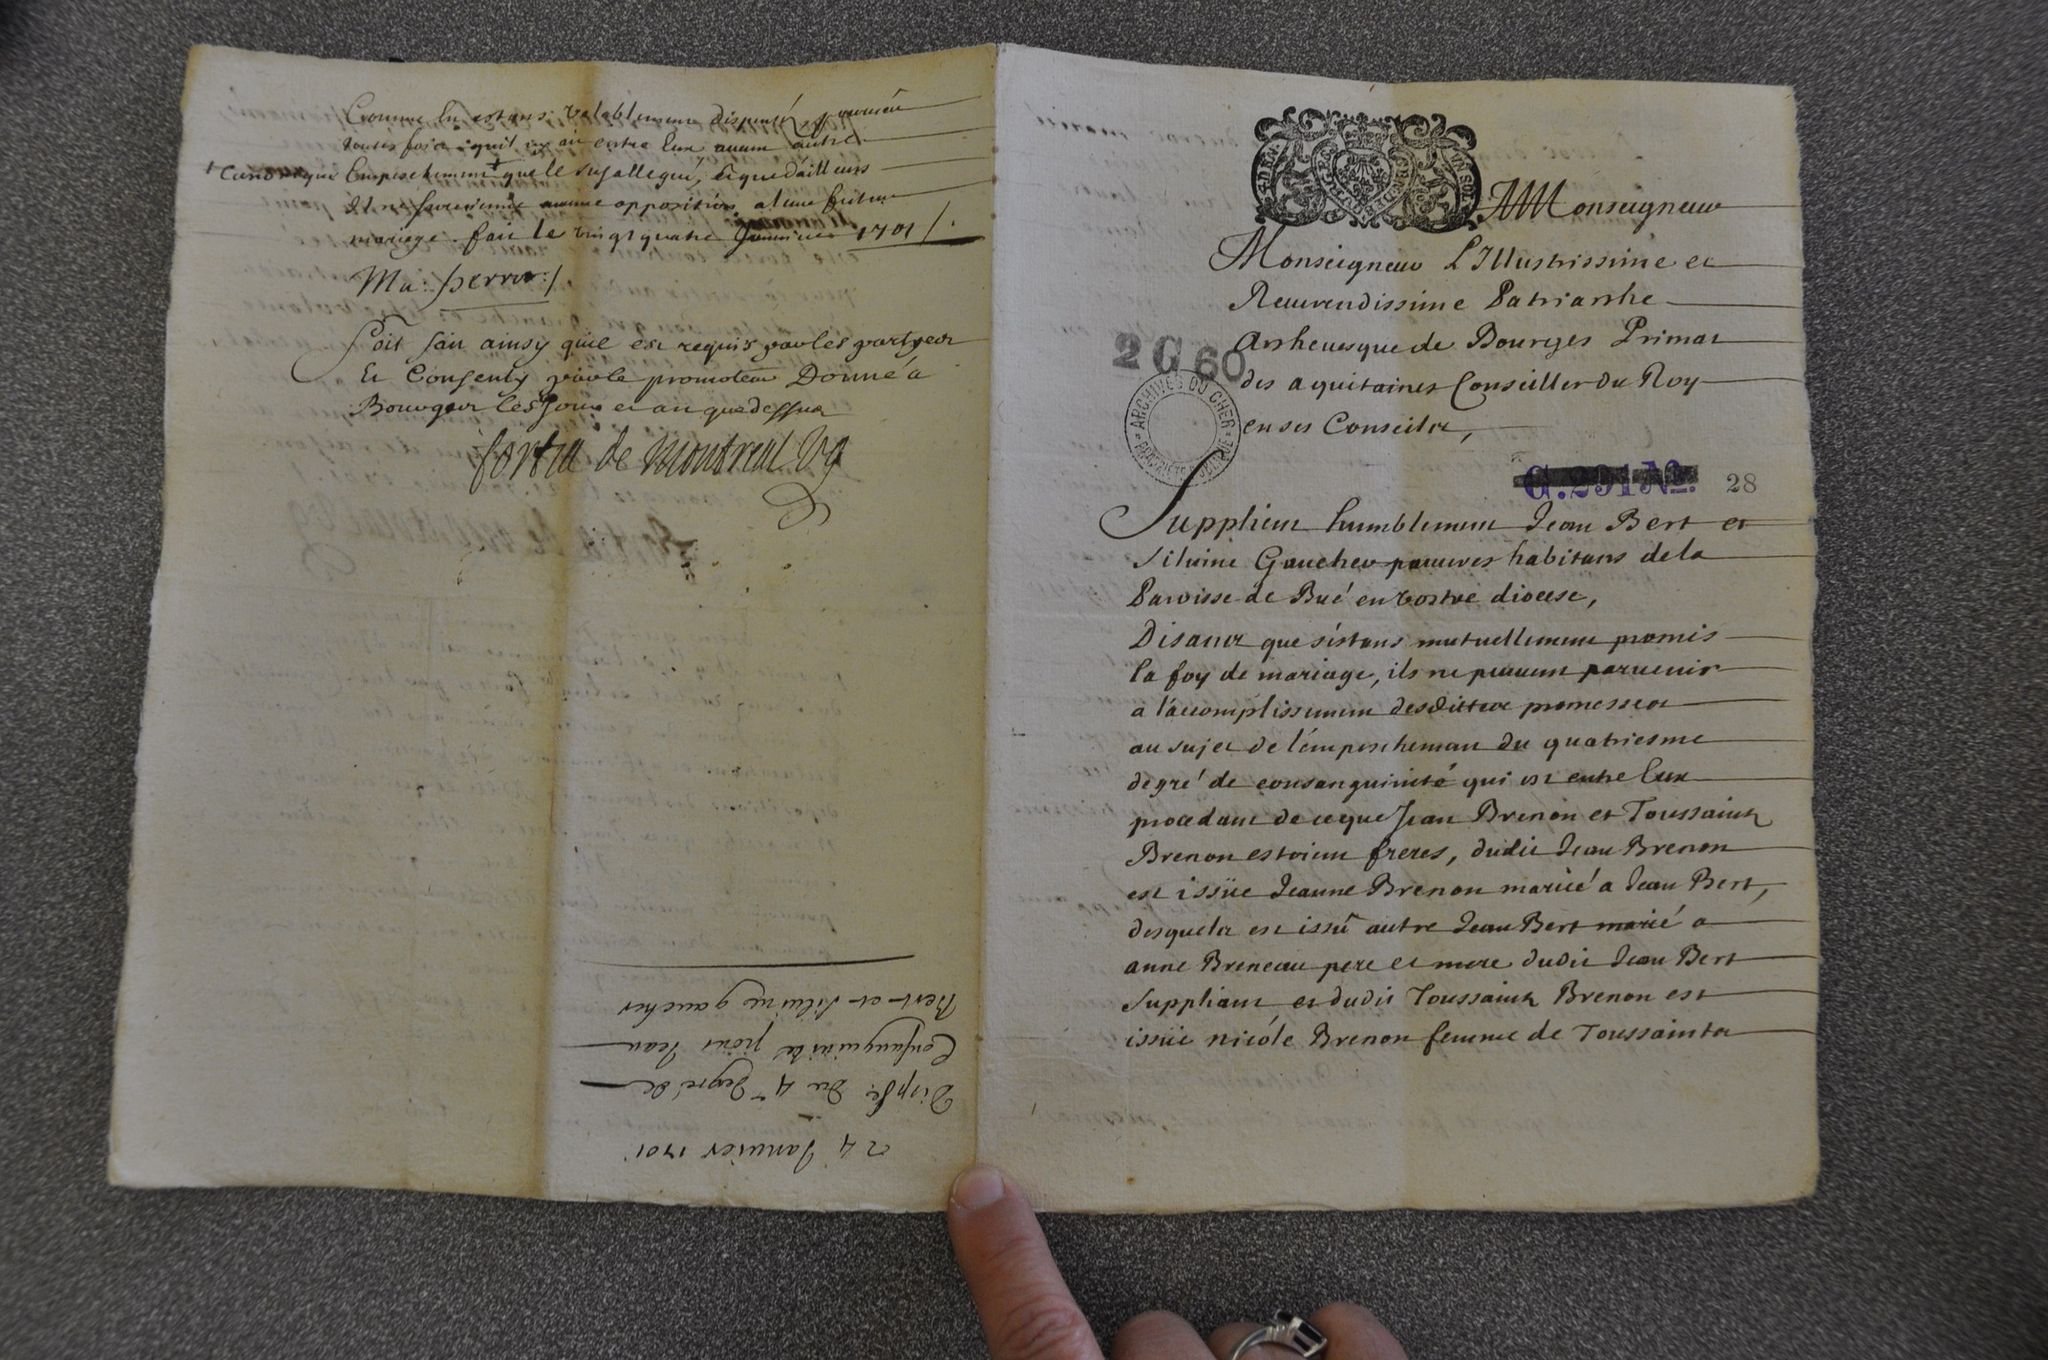 Comme en estans valablement dispensé pourveu
toutes fois quil ny ait entre Eux aucun autre
+ Canonique Empeschement + que le susallegué, et que dailleurs
Il ne survienne aucune opposition aleur futur
mariage. fait le vingt quatre Janvier 1701 /.
Soit fait ainsy quil est requis par les partyes
Et Consenty par le promoteur Donné a
Bourges les jour et an que dessus
fortia de montreal vg
24 Janvier 1701
Dispse du 4e degré de
Consanguinité pour Jean
Bert et Silvine gaucher
A Monseigneur
Monseigneur L'Illustrissime et
Reverendissime Patriarche
Archevesque de Bourges Primat
des aquitaines Conseiller du Roy
en ses Conseils,
2 G 60
ARCHIVES DU CHER
G. 291 No. 28
Supplient humblement Jean Bert et
Silvine Gaucher pauvres habitans de la
Paroisse de Bué en vostre diocese,
Disans que s'éstans mutuellement promis
la foy de mariage, ils ne peuvent parvenir
a l'accomplissement desdittes promesses
au sujet de l'émpeschement du quatriesme
degré de consanguinité qui est entre Eux
procedant de ce que Jean Brenon et Toussaint
Brenon estoient freres, dudit Jean Brenon
est issüe Jeanne Brenon mariée a Jean Bert,
desquels est issu autre Jean Bert marié a
anne Breneau pere et mere dudit Jean Bert
Suppliant et dudit Toussaint Brenon est
issüe nicóle Brenon femme de Toussaints